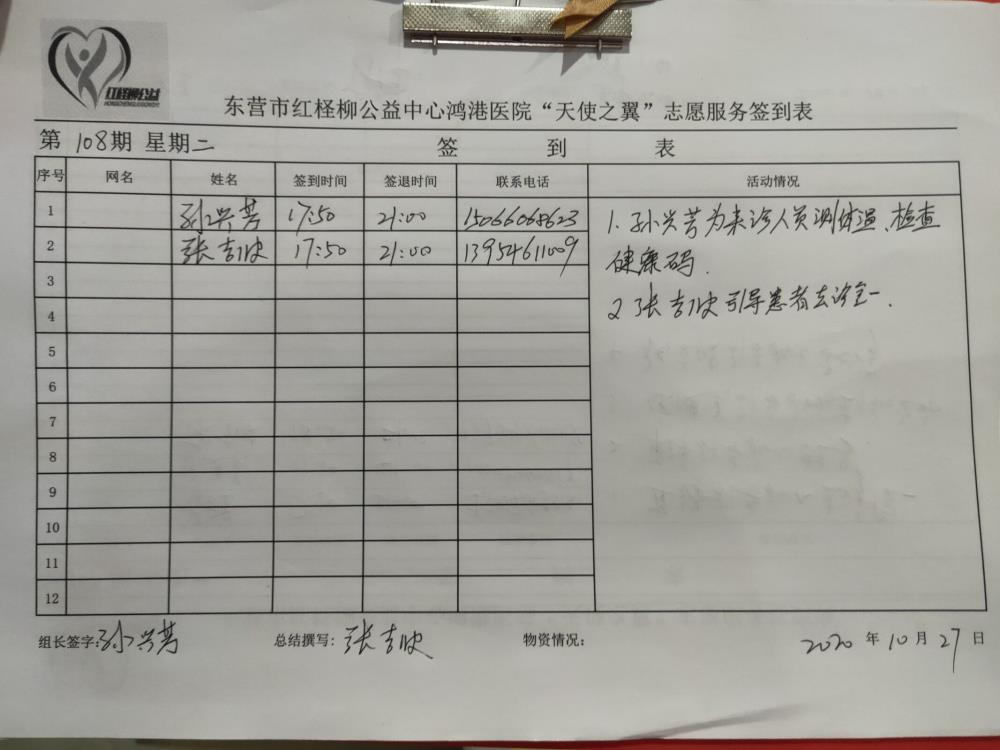 红柽柳公益
东营市红柽柳公益中心鸿港医院“天使之翼”志愿服务签到表
第 108期 星期二 签 到 表
序号 网名 姓名 签到时间 签退时间 联系电话 活动情况
1 孙兴芳 17:50 21:00 15066068623
2 张吉 17:50 21:00 13954611009
3
4
5
6
7
8
9
10
11
12
1.孙兴芳为来诊人员测体温、检查
健康码.
2 张吉 引导患者去诊室.
组长签字:孙兴芳 总结撰写:张吉 物资情况: 2020 年 10 月 27 日